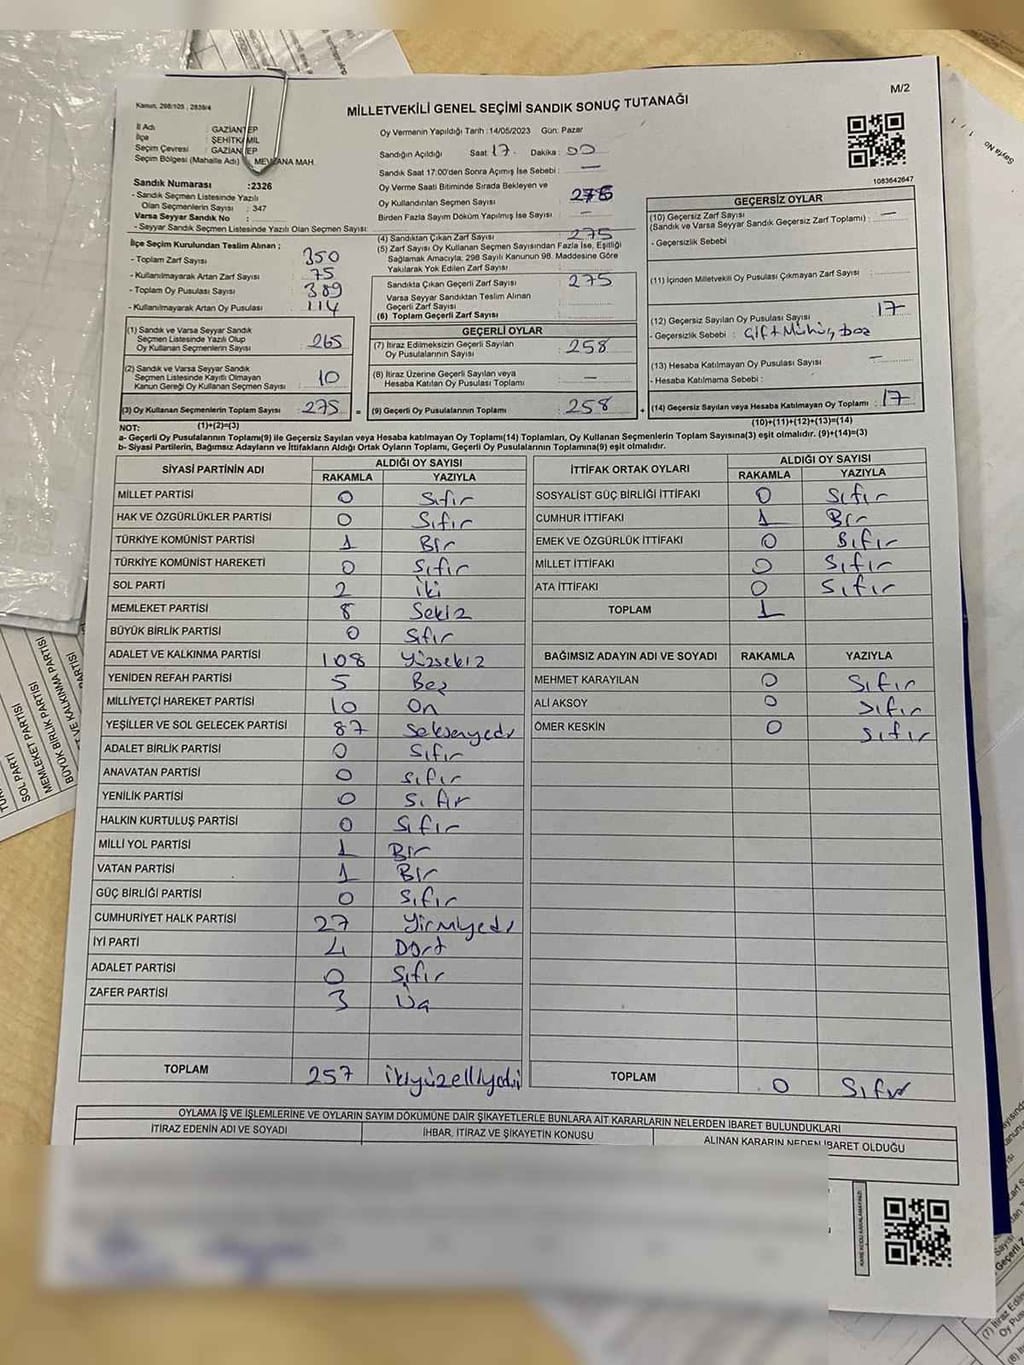 M/2
MİLLETVEKİLİ GENEL SEÇİMİ SANDIK SONUÇ TUTANAĞI
Kanun, 298/105 , 2839/4
İl Adı GAZİANTEP
İlçe ŞEHİTKAMİL
Seçim Çevresi GAZİANTEP
Seçim Bölgesi (Mahalle Adı) MEVLANA MAH.
Sandık Numarası :2326
- Sandık Seçmen Listesinde Yazılı
Olan Seçmenlerin Sayısı : 347
Varsa Seyyar Sandık No :
- Seyyar Sandık Seçmen Listesinde Yazılı Olan Seçmen Sayısı:
Oy Vermenin Yapıldığı Tarih :14/05/2023 Gün: Pazar
Sandığın Açıldığı Saat 17 Dakika: 00
Sandık Saat 17:00'den Sonra Açımış İse Sebebi : —
Oy Verme Saati Bitiminde Sırada Bekleyen ve
Oy Kullandırılan Seçmen Sayısı
Birden Fazla Sayım Döküm Yapılmış İse Sayısı : —
1083642647
İlçe Seçim Kurulundan Teslim Alınan ;
- Toplam Zarf Sayısı : 350
- Kullanılmayarak Artan Zarf Sayısı : 75
- Toplam Oy Pusulası Sayısı : 389
- Kullanılmayarak Artan Oy Pusulası : 114
(1) Sandık ve Varsa Seyyar Sandık
Seçmen Listesinde Yazılı Olup
Oy Kullanan Seçmenlerin Sayısı : 265
(2) Sandık ve Varsa Seyyar Sandık
Seçmen Listesinde Kayıtlı Olmayan
Kanun Gereği Oy Kullanan Seçmen Sayısı : 10
(3) Oy Kullanan Seçmenlerin Toplam Sayısı : 275
(1)+(2)=(3)
(4) Sandıktan Çıkan Zarf Sayısı : 275
(5) Zarf Sayısı Oy Kullanan Seçmen Sayısından Fazla İse, Eşitliği
Sağlamak Amacıyla; 298 Sayılı Kanunun 98. Maddesine Göre
Yakılarak Yok Edilen Zarf Sayısı :
Sandıkta Çıkan Geçerli Zarf Sayısı : 275
Varsa Seyyar Sandıktan Teslim Alınan
Geçerli Zarf Sayısı :
(6) Toplam Geçerli Zarf Sayısı :
GEÇERLİ OYLAR
(7) İtiraz Edilmeksizin Geçerli Sayılan
Oy Pusulalarının Sayısı : 258
(8) İtiraz Üzerine Geçerli Sayılan veya
Hesaba Katılan Oy Pusulası Toplamı : —
= (9) Geçerli Oy Pusulalarının Toplamı : 258
GEÇERSİZ OYLAR
(10) Geçersiz Zarf Sayısı : —
(Sandık ve Varsa Seyyar Sandık Geçersiz Zarf Toplamı)
- Geçersizlik Sebebi
(11) İçinden Milletvekili Oy Pusulası Çıkmayan Zarf Sayısı :
(12) Geçersiz Sayılan Oy Pusulası Sayısı : 17
- Geçersizlik Sebebi :
(13) Hesaba Katılmayan Oy Pusulası Sayısı : —
- Hesaba Katılmama Sebebi :
+ (14) Geçersiz Sayılan veya Hesaba Katılmayan Oy Toplamı : 17
(10)+(11)+(12)+(13)=(14)
NOT:
a- Geçerli Oy Pusulalarının Toplamı(9) ile Geçersiz Sayılan veya Hesaba katılmayan Oy Toplamı(14) Toplamları, Oy Kullanan Seçmenlerin Toplam Sayısına(3) eşit olmalıdır. (9)+(14)=(3)
b- Siyasi Partilerin, Bağımsız Adayların ve İttifakların Aldığı Ortak Oyların Toplamı, Geçerli Oy Pusulalarının Toplamına(9) eşit olmalıdır.
SİYASİ PARTİNİN ADI ALDIĞI OY SAYISI
RAKAMLA YAZIYLA
MİLLET PARTİSİ 0 Sıfır
HAK VE ÖZGÜRLÜKLER PARTİSİ 0 Sıfır
TÜRKİYE KOMÜNİST PARTİSİ 1 Bir
TÜRKİYE KOMÜNİST HAREKETİ 0 Sıfır
SOL PARTİ 2 iki
MEMLEKET PARTİSİ 8 Sekiz
BÜYÜK BİRLİK PARTİSİ 0 Sıfır
ADALET VE KALKINMA PARTİSİ 108 Yüzsekiz
YENİDEN REFAH PARTİSİ 5 Beş
MİLLİYETÇİ HAREKET PARTİSİ 10 On
YEŞİLLER VE SOL GELECEK PARTİSİ 87 Seksenyedi
ADALET BİRLİK PARTİSİ 0 Sıfır
ANAVATAN PARTİSİ 0 Sıfır
YENİLİK PARTİSİ 0 Sıfır
HALKIN KURTULUŞ PARTİSİ 0 Sıfır
MİLLİ YOL PARTİSİ 1 Bir
VATAN PARTİSİ 1 Bir
GÜÇ BİRLİĞİ PARTİSİ 0 Sıfır
CUMHURİYET HALK PARTİSİ 27 Yirmiyedi
İYİ PARTİ 4 Dört
ADALET PARTİSİ 0 Sıfır
ZAFER PARTİSİ 3 Üç
TOPLAM 257 ikiyüzelliyedi
İTTİFAK ORTAK OYLARI ALDIĞI OY SAYISI
RAKAMLA YAZIYLA
SOSYALİST GÜÇ BİRLİĞİ İTTİFAKI 0 Sıfır
CUMHUR İTTİFAKI 1 Bir
EMEK VE ÖZGÜRLÜK İTTİFAKI 0 Sıfır
MİLLET İTTİFAKI 0 Sıfır
ATA İTTİFAKI 0 Sıfır
TOPLAM 1
BAĞIMSIZ ADAYIN ADI VE SOYADI RAKAMLA YAZIYLA
MEHMET KARAYILAN 0 Sıfır
ALİ AKSOY 0 Sıfır
ÖMER KESKİN 0 Sıfır
TOPLAM 0 Sıfır
OYLAMA İŞ VE İŞLEMLERİNE VE OYLARIN SAYIM DÖKÜMÜNE DAİR ŞİKAYETLERLE BUNLARA AİT KARARLARIN NELERDEN İBARET BULUNDUKLARI
İTİRAZ EDENİN ADI VE SOYADI İHBAR, İTİRAZ VE ŞİKAYETİN KONUSU ALINAN KARARIN NEDEN İBARET OLDUĞU
Sayfa No
SOL PARTİ
MEMLEKET PARTİSİ
BÜYÜK BİRLİK PARTİSİ